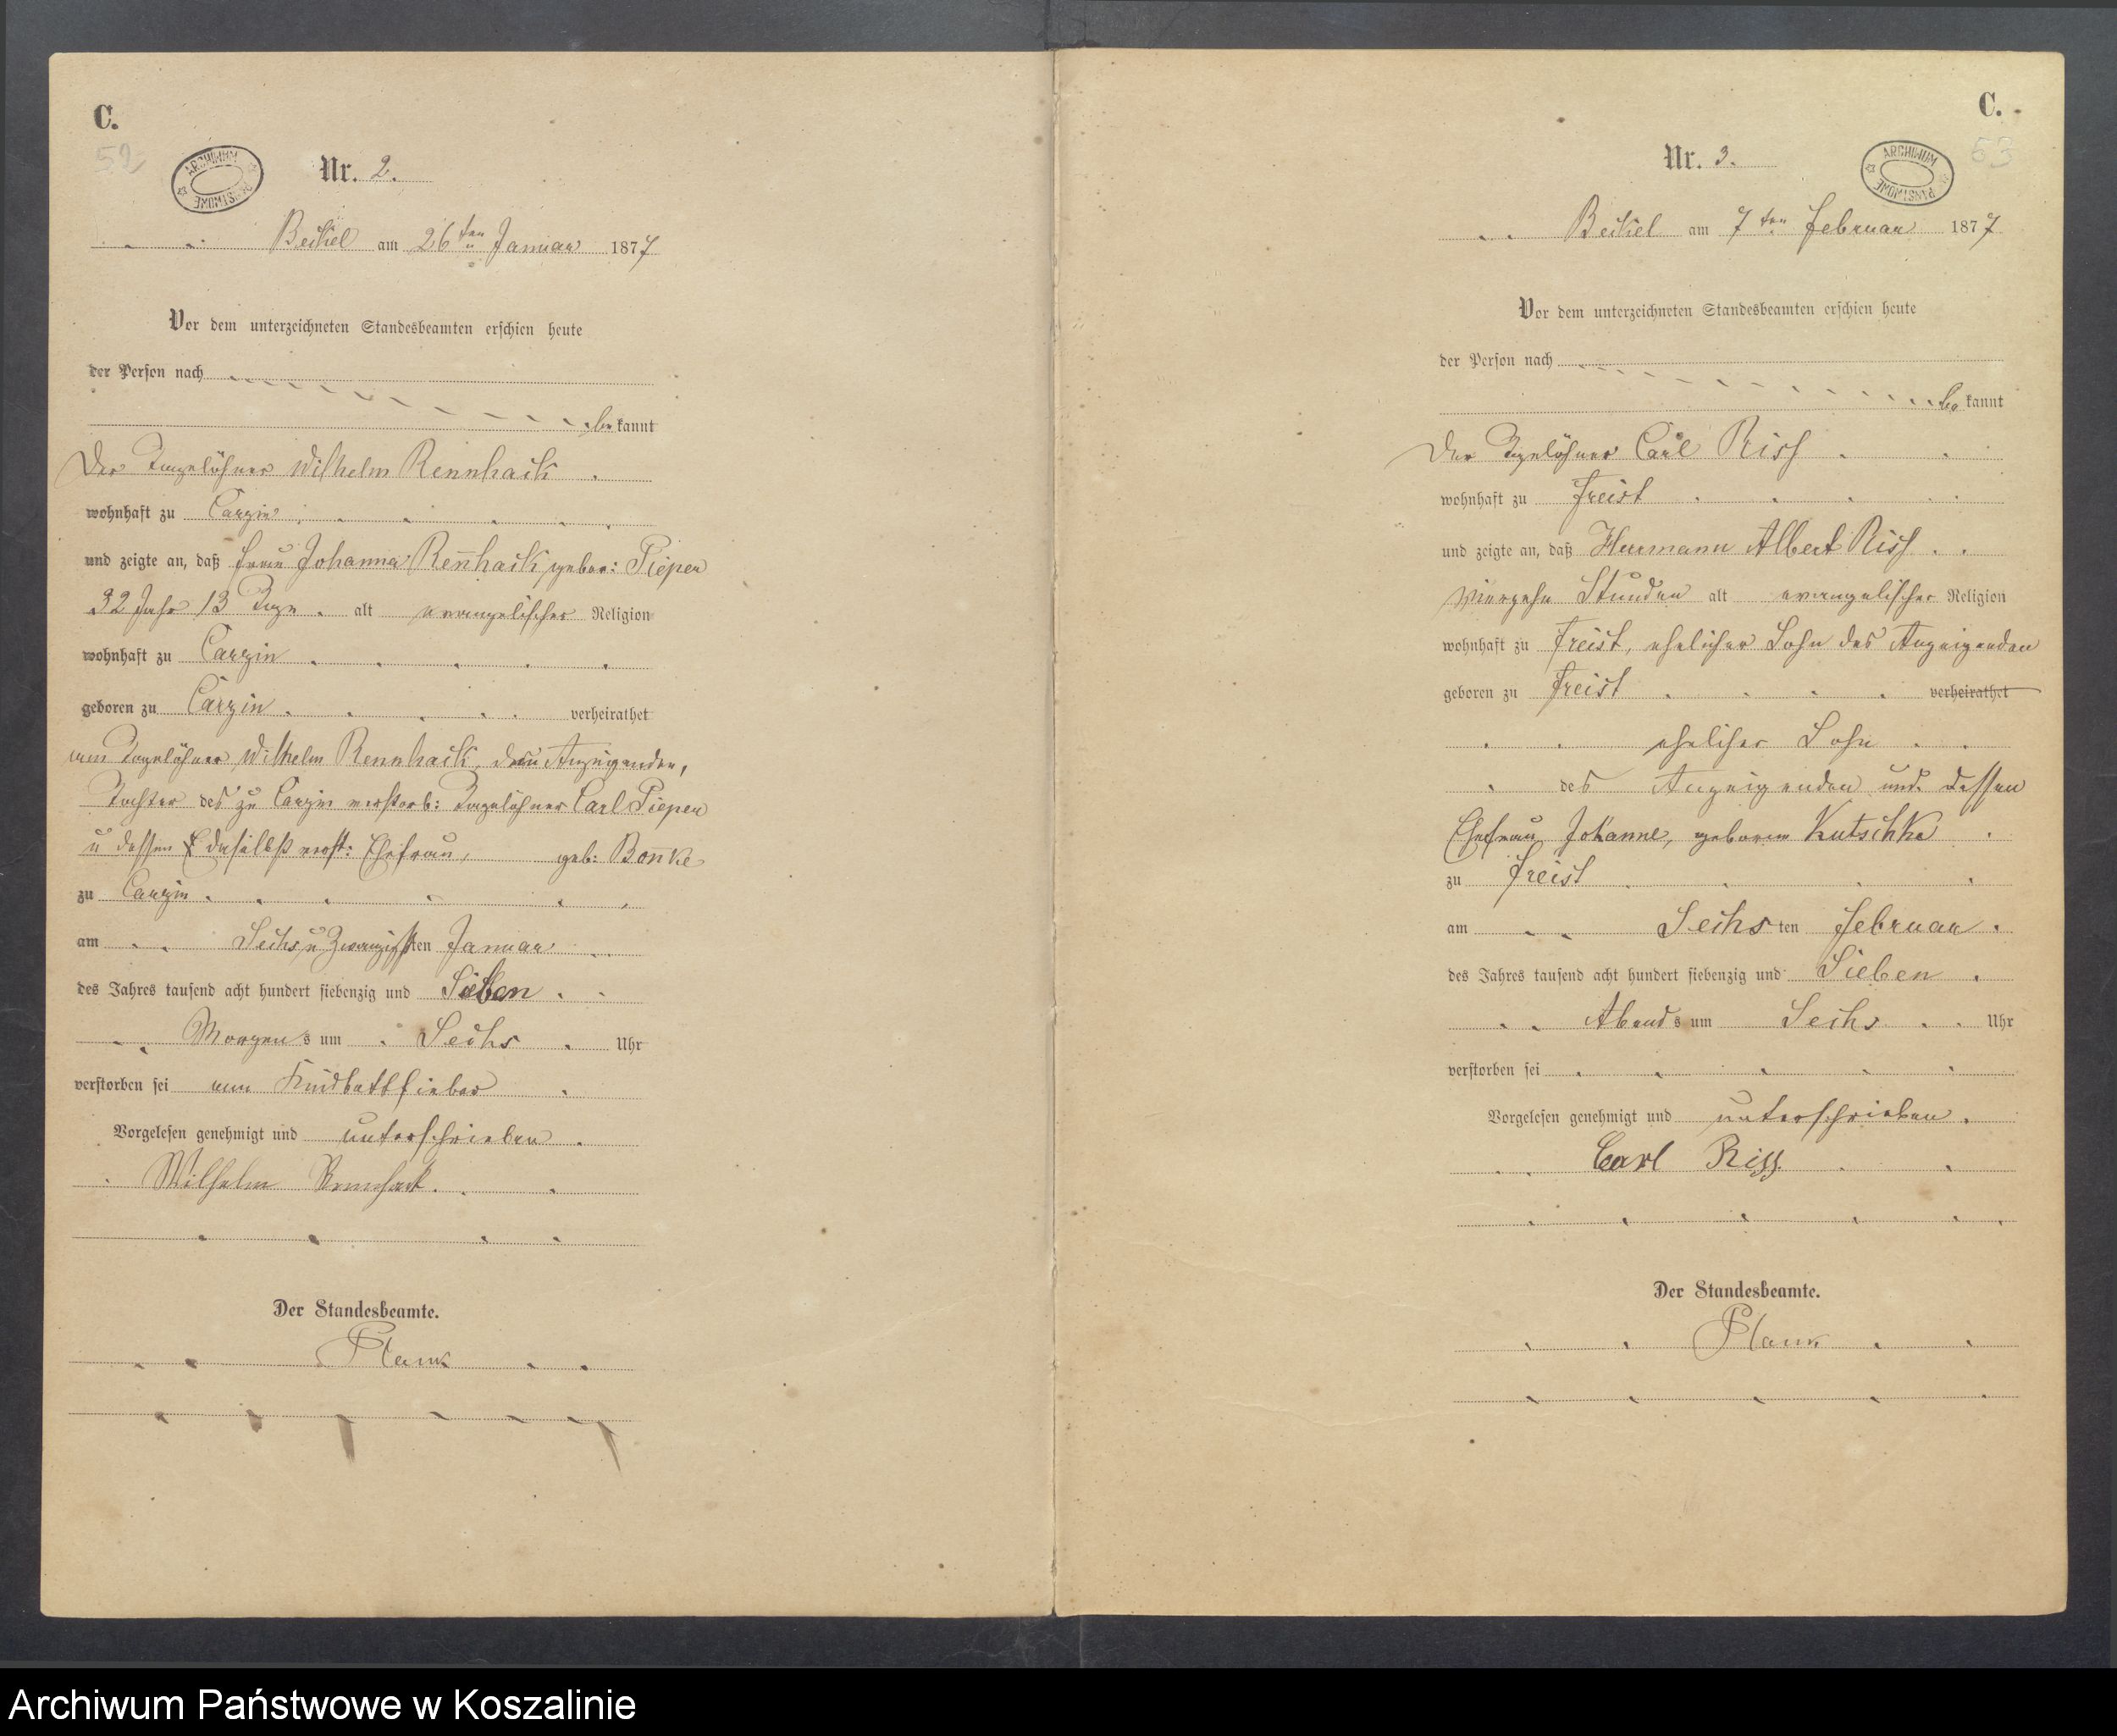 C.
52
ARCHIWUM PAŃSTWOWE
Nr. 2.
Beckel am 26ten Januar 1877
Vor dem unterzeichneten Standesbeamten erschien heute
der Person nach
bekannt
Der Tagelöhner Wilhelm Rennhack
wohnhaft zu Carzin
und zeigte an, daß Frau Johanna Reñhack, gebor: Pieper
32 Jahr 13 Tage alt evangelischer Religion
wohnhaft zu Carzin
geboren zu Carzin verheirathet
mit Tagelöhner Wilhelm Rennhack, dem Anzeigenden,
Tochter des zu Carzin verstorb: Tagelöhner Carl Pieper
u dessen daselbst verst: Ehefrau, geb: Boñke
zu Carzin
am Sechs u Zwanzigsten Januar
des Jahres tausend acht hundert siebenzig und Sieben
Morgens um Sechs Uhr
verstorben sei am Kindbettfieber
Vorgelesen genehmigt und unterschrieben.
Wilhelm Rennhack.
Der Standesbeamte.
Plank
C.
53
ARCHIWUM PAŃSTWOWE
Nr. 3.
Beckel am 7ten Februar 1877
Vor dem unterzeichneten Standesbeamten erschien heute
der Person nach
bekannt
Der Tagelöhner Carl Riss
wohnhaft zu Freist
und zeigte an, daß Hermann Albert Riss
Vierzehn Stunden alt evangelischer Religion
wohnhaft zu Freist, ehelicher Sohn des Anzeigenden
geboren zu Freist verheirathet
ehelicher Sohn
des Anzeigenden und dessen
Ehefrau Johanne, geboren Kutschke
zu Freist
am Sechsten Februar.
des Jahres tausend acht hundert siebenzig und Sieben
Abends um Sechs Uhr
verstorben sei
Vorgelesen genehmigt und unterschrieben.
Carl Riss.
Der Standesbeamte.
Plank
Archiwum Państwowe w Koszalinie